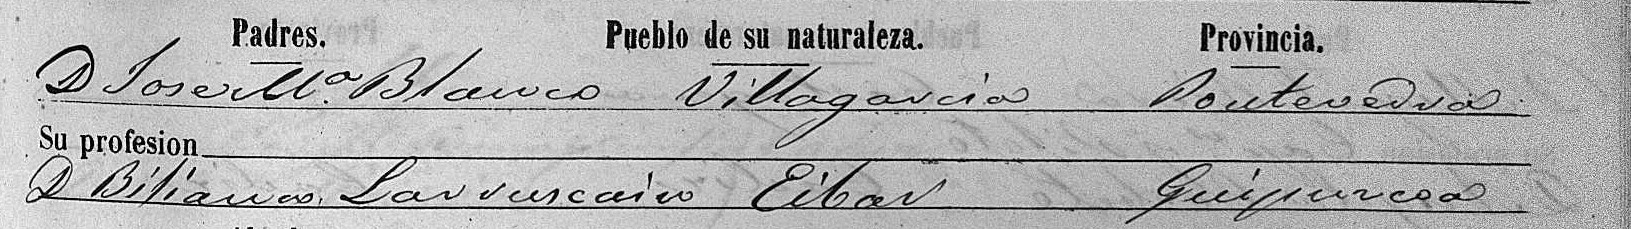 Padres. Pueblo de su naturaleza. Provincia.
D Jose Mª. Blanco Villagarcia Pontevedra.
Su profesion
D Bibiana Larruscain Eibar Guipuzcoa